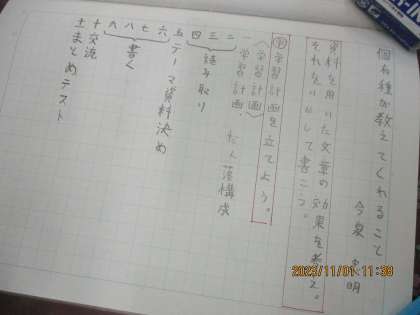 固有種が教えてくれること
今泉 忠明
資料を用いた文章の効果を考え、
それをいかして書こう。
学習計画を立てよう。
〈学習計画〉
一 学習計画 だん落構成
二
三 読み取り
四
五 テーマ資料決め
六
七
八 書く
九
十 交流
十一 まとめテスト
2023/11/01 11:39